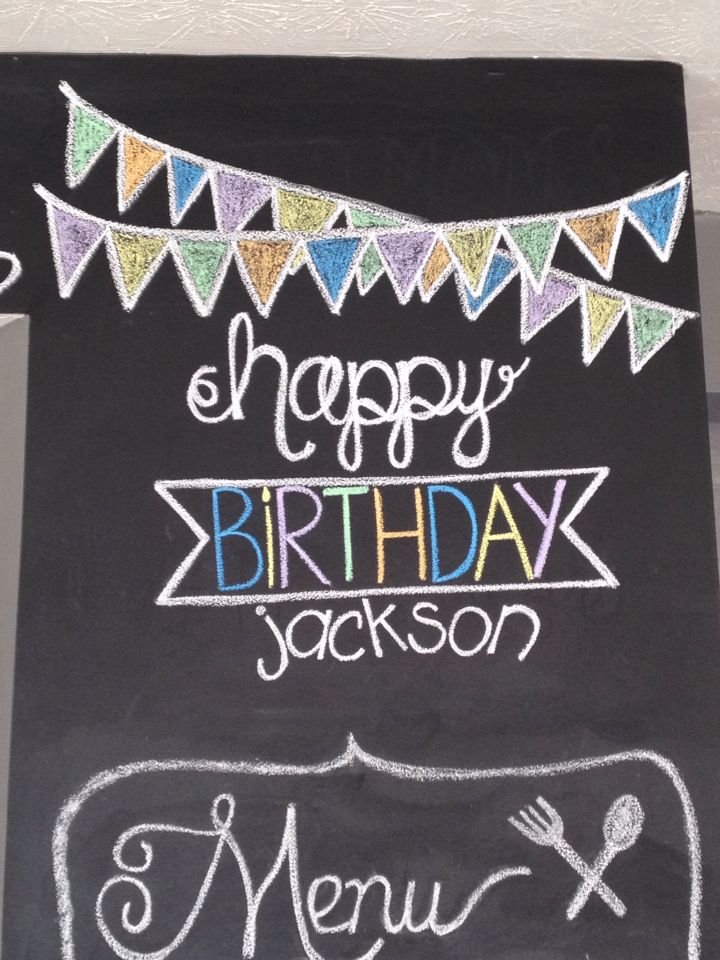 happy
BiRTHDAY
jackson
Menu